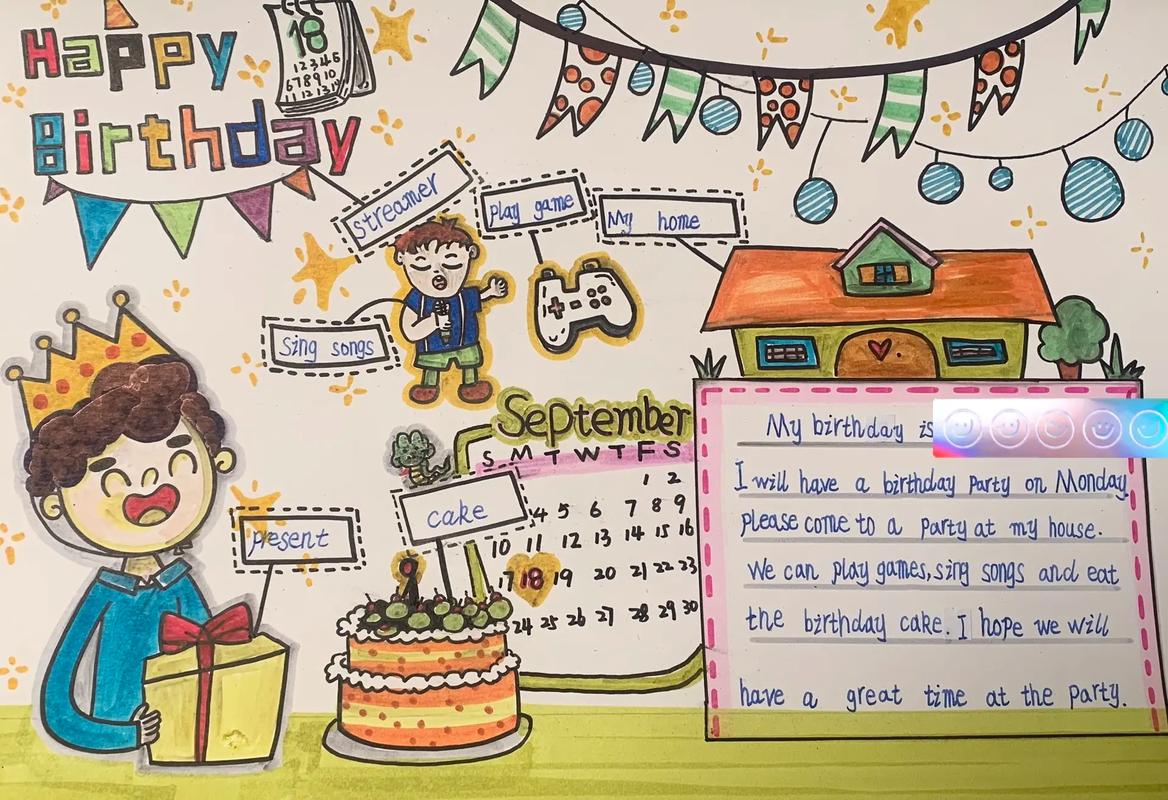 Happy
Birthday
18
6 7 8 9 10
streamer
play game
My home
Sing songs
present
cake
September
S M T W T F S
1 2
4 5 6 7 8 9
10 11 12 13 14 15 16
17 18 19 20 21 22 23
24 25 26 27 28 29 30
My birthday is
I will have a birthday party on Monday
please come to a party at my house.
We can play games, sing songs and eat
the birthday cake. I hope we will
have a great time at the party.